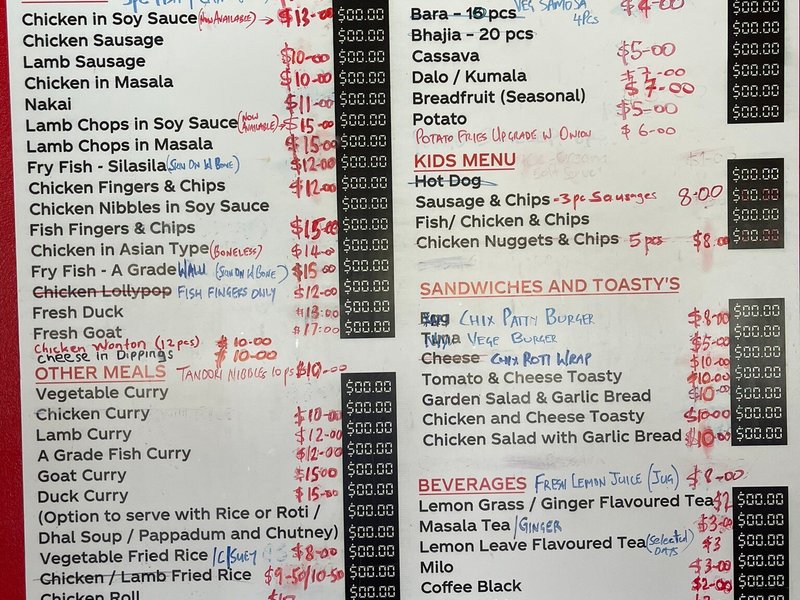 Chicken in Soy Sauce (Now Available) → $13-00 $00.00
Chicken Sausage $00.00
Lamb Sausage $10-00 $00.00
Chicken in Masala $10-00 $00.00
Nakai $11-00 $00.00
Lamb Chops in Soy Sauce (Now Available) → $15-00 $00.00
Lamb Chops in Masala $15-00 $00.00
Fry Fish - Silasila (Skin On W Bone) $12-00 $00.00
Chicken Fingers & Chips $12-00 $00.00
Chicken Nibbles in Soy Sauce $00.00
Fish Fingers & Chips $15-00 $00.00
Chicken in Asian Type (BONELESS) $14-00 $00.00
Fry Fish - A Grade WALU (SKIN ON W BONE) $15-00 $00.00
Chicken Lollypop FISH FINGERS ONLY $12-00 $00.00
Fresh Duck $13-00 $00.00
Fresh Goat $17-00 $00.00
Chicken Wonton (12 pcs) $10-00
Cheese in Dippings $10-00
OTHER MEALS TANDORI NIBBLES 10 ps $10-00
Vegetable Curry $00.00
Chicken Curry $10-00 $00.00
Lamb Curry $12-00 $00.00
A Grade Fish Curry $12-00 $00.00
Goat Curry $15-00 $00.00
Duck Curry $15-00 $00.00
(Option to serve with Rice or Roti / $00.00
Dhal Soup / Pappadum and Chutney) $00.00
Vegetable Fried Rice /C/SUEY $8-00 $00.00
Chicken / Lamb Fried Rice $9-50/10-50 $00.00
Chicken Roll $10
VEG SAMOSA 4PCS $4-00
Bara - pcs $00.00
Bhajia - 20 pcs $00.00
Cassava $5-00 $00.00
Dalo / Kumala $7-00 $00.00
Breadfruit (Seasonal) $7-00 $00.00
Potato $5-00 $00.00
POTATO FRIES UPGRADE W ONION $6-00
KIDS MENU
Hot Dog $00.00
Sausage & Chips - 3 pc Sausages 8-00 $00.00
Fish/ Chicken & Chips $00.00
Chicken Nuggets & Chips 5 pcs $8-00 $00.00
SANDWICHES AND TOASTY'S
Egg CHIX PATTY BURGER $8-00 $00.00
Tuna VEGE BURGER $5-00 $00.00
Cheese CHIX ROTI WRAP $10-00 $00.00
Tomato & Cheese Toasty $10-00 $00.00
Garden Salad & Garlic Bread $10 $00.00
Chicken and Cheese Toasty $10-00 $00.00
Chicken Salad with Garlic Bread $10-00 $00.00
BEVERAGES FRESH LEMON JUICE (JUG) $8-00
Lemon Grass / Ginger Flavoured Tea $2 $00.00
Masala Tea /GINGER $3-00 $00.00
Lemon Leave Flavoured Tea (Selected DAYS) $3 $00.00
Milo $3-00 $00.00
Coffee Black $2-00 $00.00